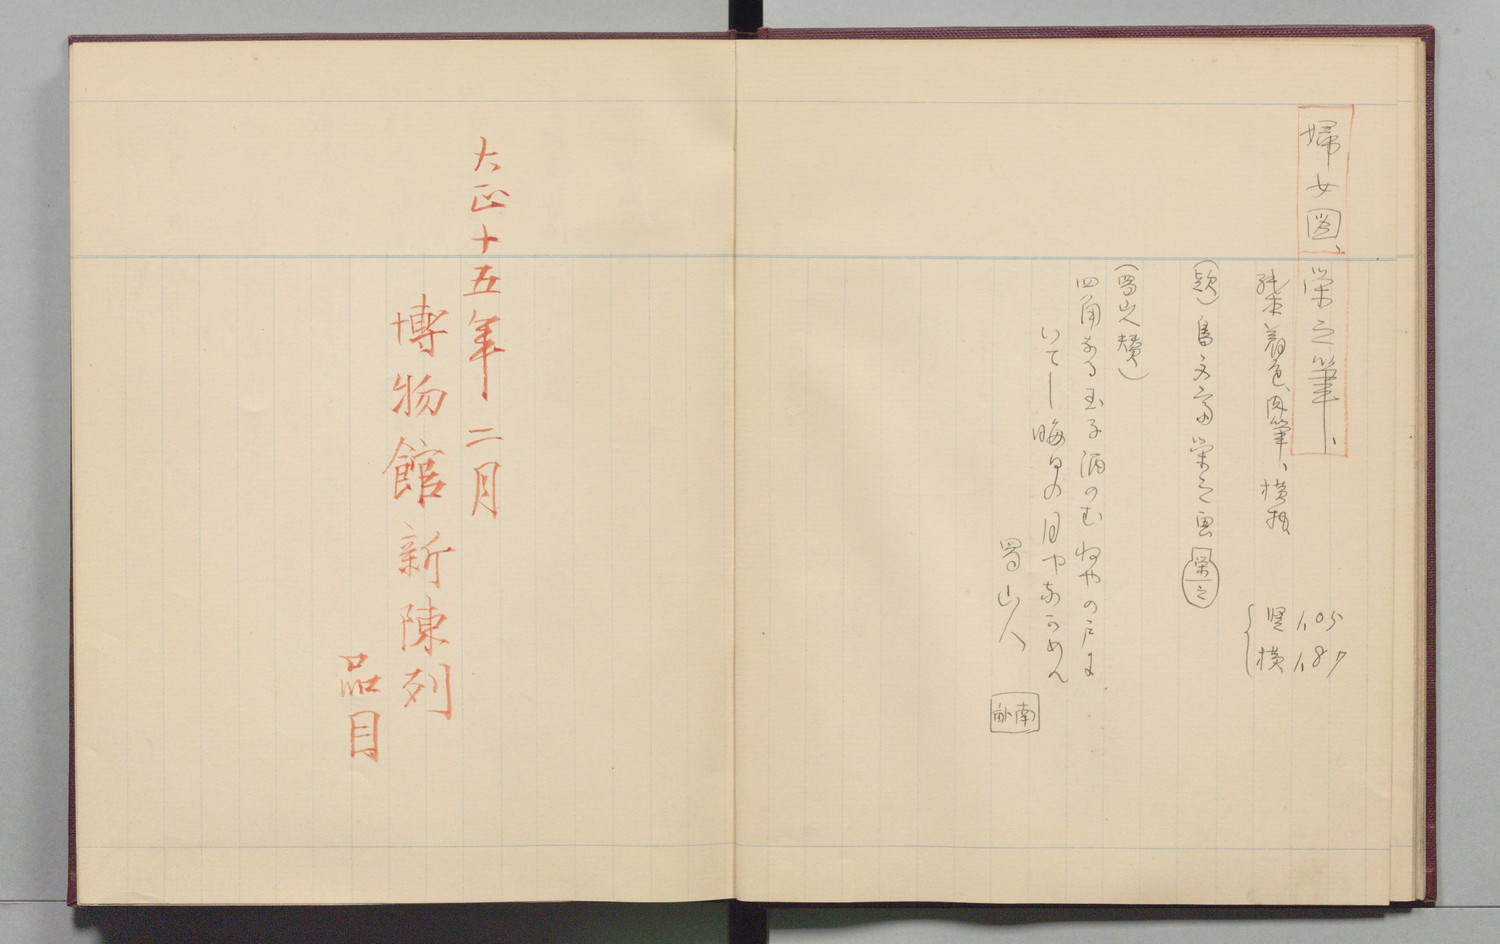 婦女図、栄之筆、
紙本着色、肉筆、横物
竪 1,05
横 1,87
(款)鳥文斎栄之画 栄之
(蜀山人賛)
四角なる玉子酒のむねやの戸は
いてし晦日の月やなかめん
蜀山人
南畝
大正十五年二月
博物館新陳列
品目